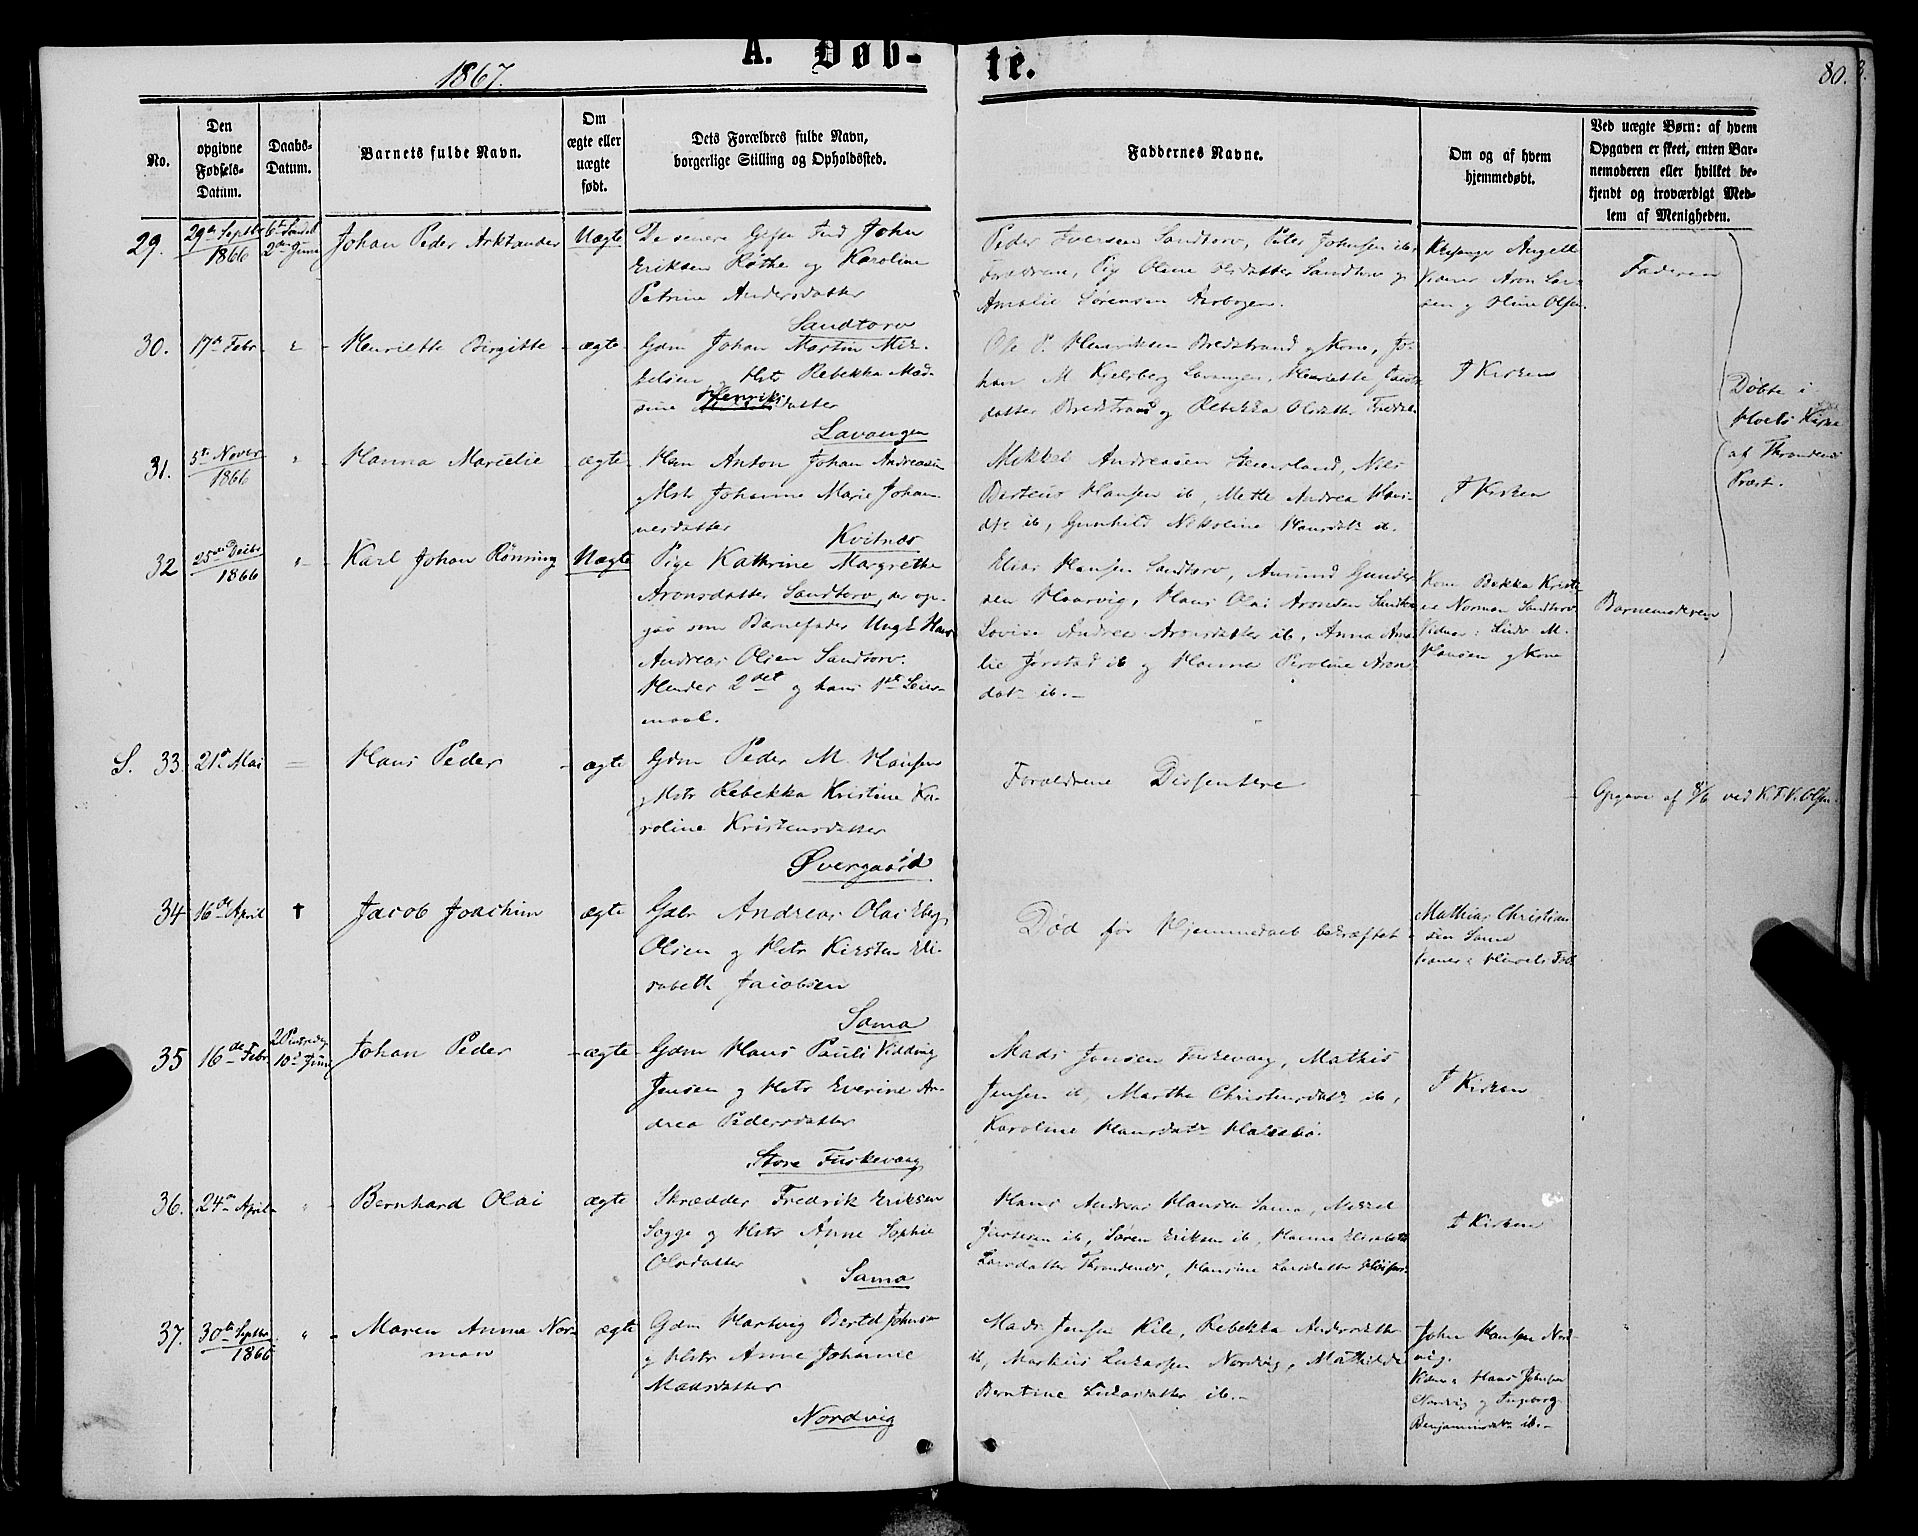 1867.
A. Døb-
te.
80.
No.
Den
opgivne
Fødsels-
Datum.
Daabs-
Datum.
Barnets fulde Navn.
Om
ægte eller
uægte
født.
Dets Forældres fulde Navn,
borgerlige Stilling og Opholdssted.
Faddernes Navne.
Om og af hvem
hjemmedøbt.
Ved uægte Børn: af hvem
Opgaven er skeet, enten Bar-
nemoderen eller hvilket be-
kjendt og troværdigt Med-
lem af Menigheden.
29.
29de Septbr
1866
2den Juni
Johan Peder Arktander
Uægte
De senere Gifte Ind John
Eriksen Røthe og Karoline
Petrine Andersdatter
Sandtorv
Peder Iversen Sandtorv, Peter Johnsen ib,
Forældrene, Pig Oline Olsdatter Sandtorv og
Amalie Sørensen Aarbogen.
Kirkesanger Angell
Vidner Aron Lar-
sen og Stine Olsen
Faderen
30.
17de Febr
Henriette Birgitte
ægte
Gdm Johan Martin Mik-
kelsen og Hstr Rebekka Mad-
sine Henriksdatter
Lavangen
Ole P. Henriksen Bredstrand og Kone, Jo-
han M Kjelsberg Lavangen, Henriette Jacobs
datter Bredstrand og Rebekka Olsdatter
I Kirken
Døbte i
Hols Kirke
af Throndenes
Præst.
31.
5te Novbr
1866
Hanna Marielie
ægte
Hsm Anton Johan Andreasen
og Hstr Johanne Marie Johan-
nesdatter
Kvitnæs
Mikkel Andreasen Steinsland, Nils
Berteus Hansen ib, Mette Andrea Hans-
dtr ib, Gunhild Nikoline Hansdatr ib.
I Kirken
32
25de Decbr
1866
Karl Johan Rønning
Uægte
Pige Kathrine Margrethe
Aronsdatter Sandtorv, der op-
gav som Barnefader Ungk Hans
Andreas Olsen Sandtorv.
Hendes 2det og hans 1ste Leier-
maal.
Elias Hansen Sandtorv, Amund Gunder
sen Haarvig, Hans Olai Aronsen Sandtorv
Lovise Andrea Aronsdatter ib, Anna Ama-
lie Jørstad ib og Hanna Peroline Arons
datr ib.
Kone Bekka Kristi-
ne Norman Sandtorv
Vidner: Ludv M.
Hansen og Kone
Barnemoderen
S. 33.
21de Mai
Hans Peder
ægte
Gdm Peder M. Hansen
og Hstr Rebekka Kristine Ka-
roline Kristensdatter
Øvergaard
Forældrene Dissentere
Opgave af 8/6 ved K.F.V. Olsen.
34
16de April
†
Jacob Joachim
ægte
Gdbr Andreas Olai Eberg
Olsen og Hstr Kirsten Eli-
sabeth Jacobsen
Sama
Død før Hjemmedaab bekræftet
Mathias Christian
sen Sama
35
16de Febr
10de Juni
Johan Peder
ægte
Gdm Hans Pauli Vidding
Jensen og Hstr Everine An-
drea Pedersdatter
Store Fuskevaag
Mads Jensen Fuskevaag, Mathis
Jensen ib, Marthe Christensdatr ib,
Karoline Hansdatr Halsebø.
I Kirken
36.
24de April
Bernhard Olai
ægte
Skrædder Fredrik Eriksen
Sagge og Hstr Anne Sophie
Olsdatter
Sama
Hans Andreas Hansen Sama, Mikkel
Jensen ib, Søren Eriksen ib, Hanna Elisabeth
Larsdatter Throndenes, Hansine Larsdatter
I Kirken
37.
30te Septbr
1866
Maren Anna Nor-
man
ægte
Gdm Hartvig Bertel Johnsen
og Hstr Anne Johanne
Madsdatter
Nordvig
Mads Jensen Kile, Rebekka Andersdatter
ib, Markus Lukassen Nordvig, Mathilde
Berntine Lukasdatter ib.
John Hansen Nord
vig.
Vidner Hans Johnsen
Nordvig og Ingeborg
Benjaminsdatr ib.